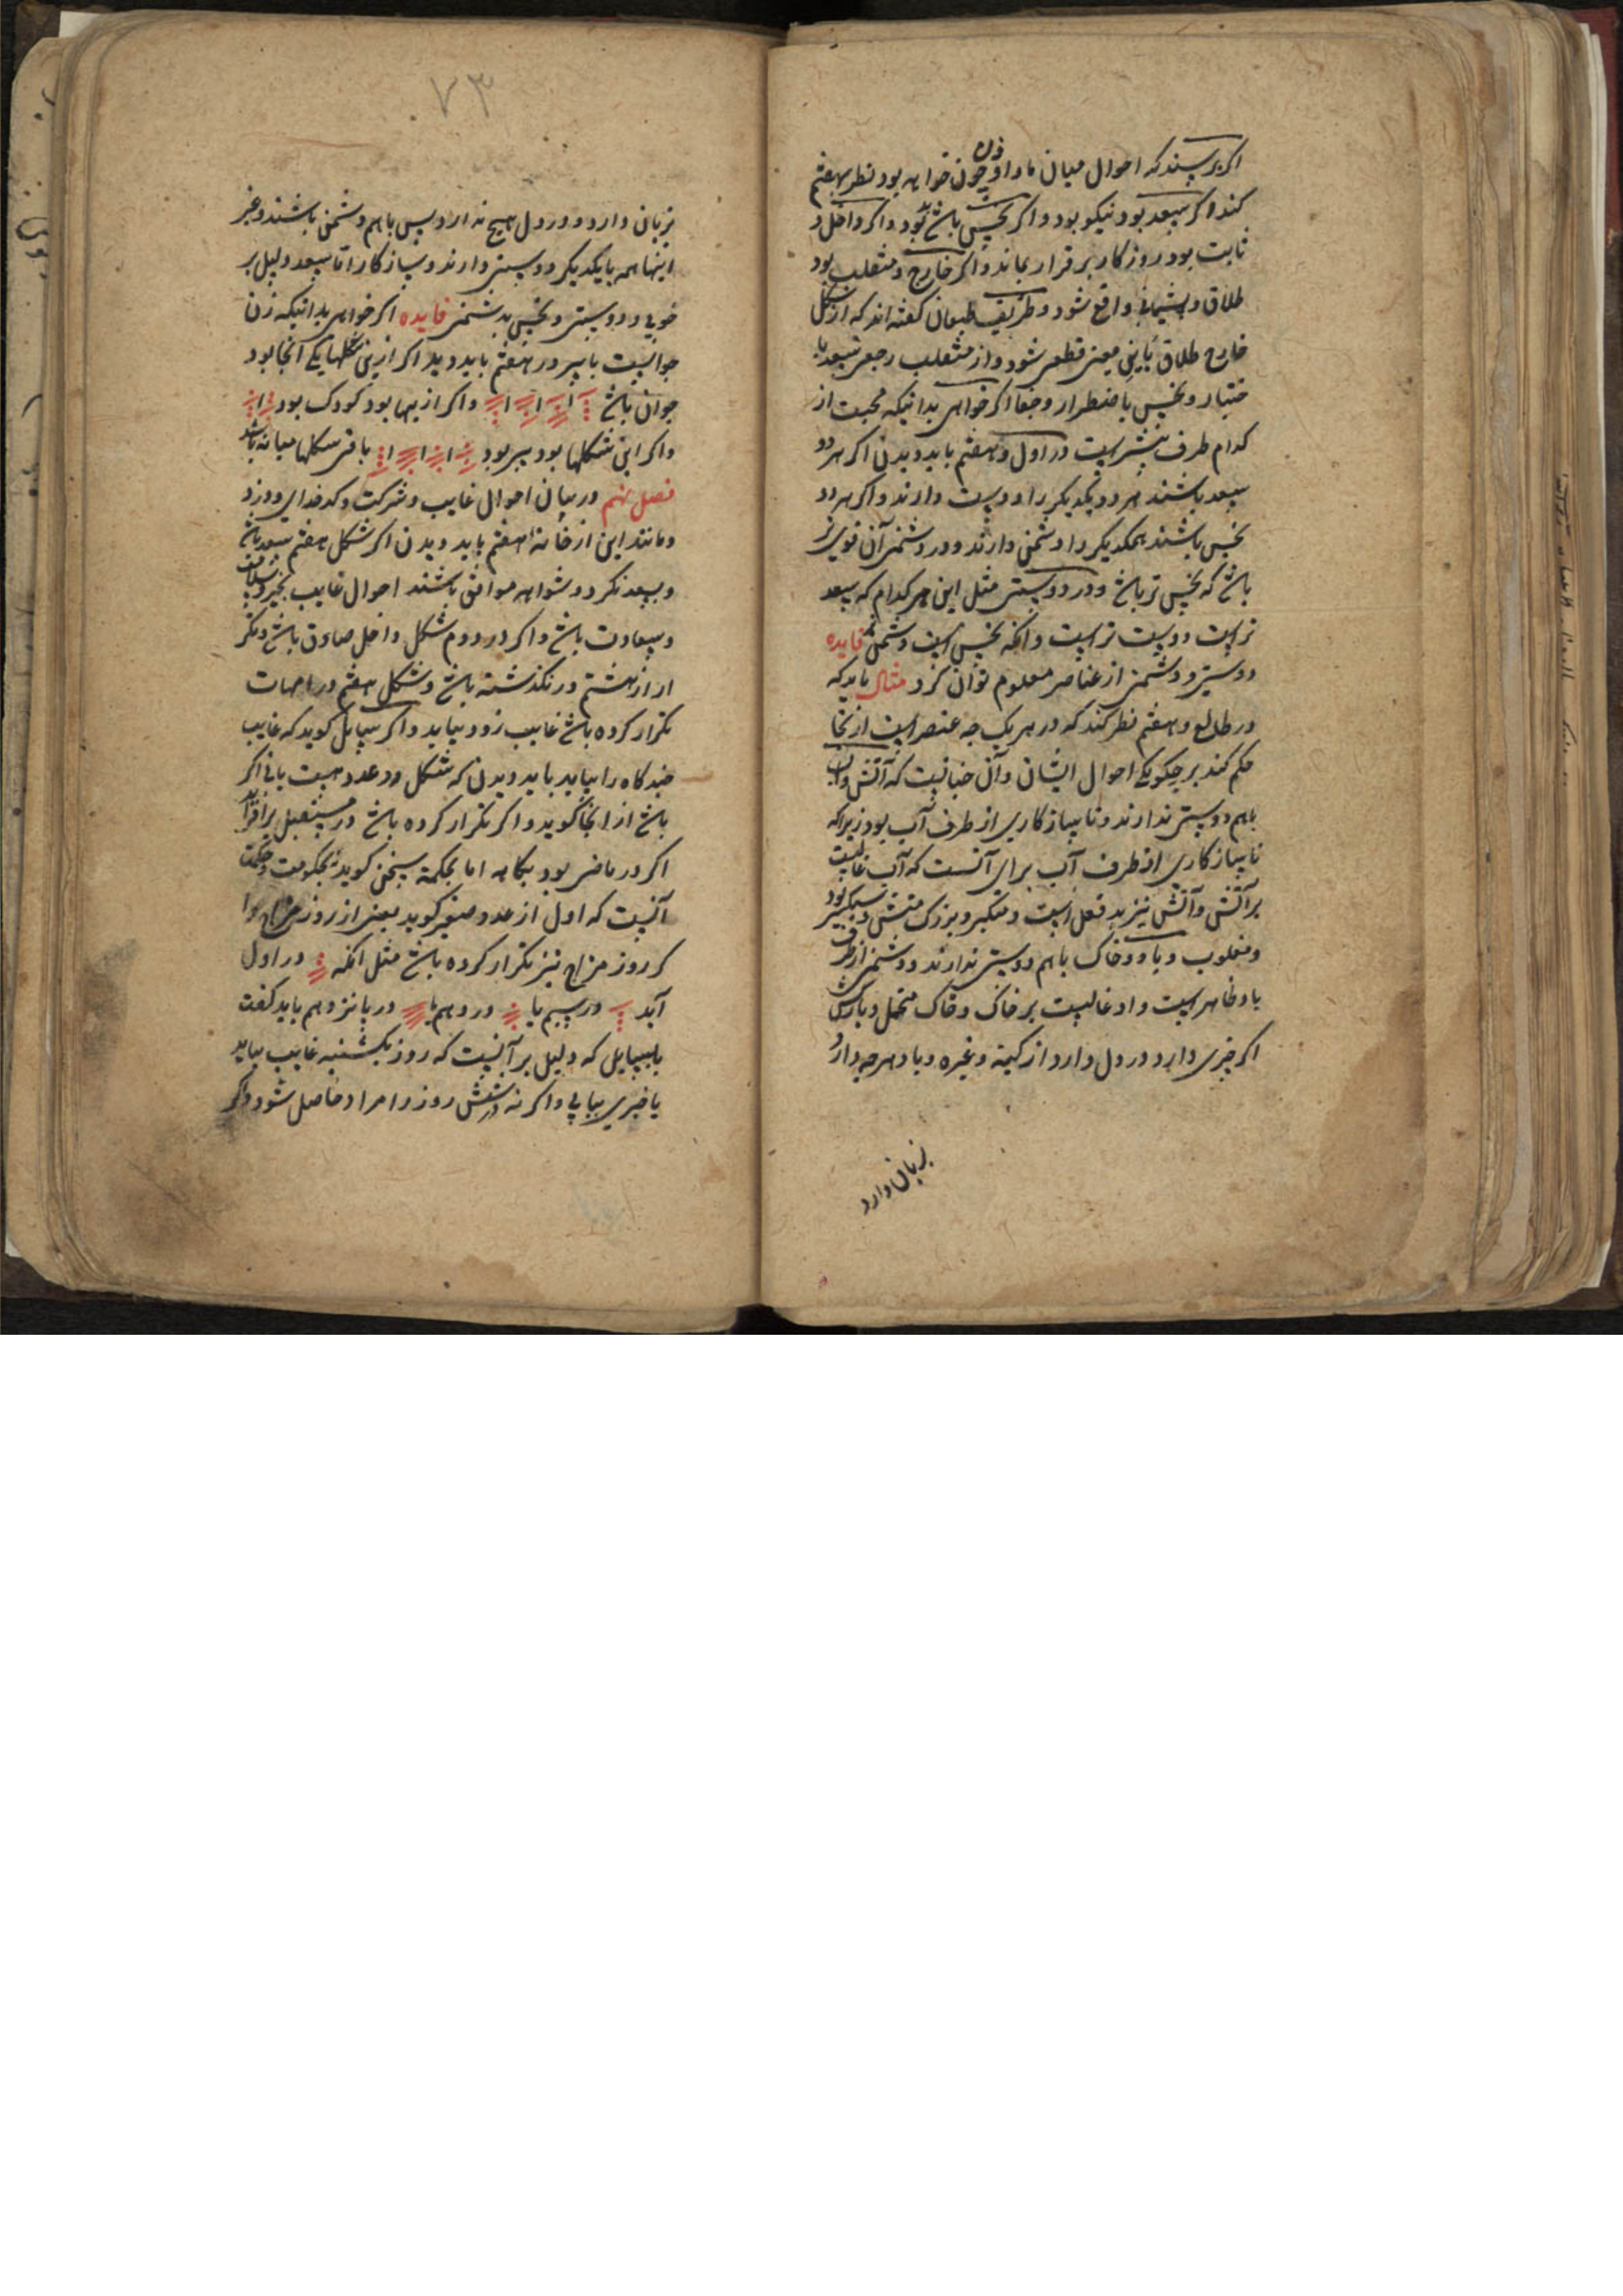 اکر پرسند که احوال میان ما و او چون خواهد بود نظر بهفتم
زن
کند اکر سعد بود نیکو بود و اکر نحس باشد بد بود و اکر داخل و
ثابت بود روزکار برقرار بماند و اکر خارج و منقلب بود
طلاق و پشیمانی واقع شود و طریف طبعان کفته اند که از شکل
خارج طلاق باین یعنی قطعی شود و از منقلب رجعی سعد با
ختیار و نحس باضطرار و جفا اکر خواهی بدانیکه محبت از
کدام طرف بیشتر است در اول و هفتم باید دیدن اکر هر دو
سعد باشند هر دو یکدیکر را دوست دارند و اکر هر دو
نحس باشند همدیکر را دشمن دارند و در دشمنی آن قوی تر
باشد که نحس تر باشد و در دوستی مثل این هر کدام که سعد
تر است دوست تر است و آنکه نحس است دشمن فایده
دوستی و دشمنی از عناصر معلوم توان کرد مثال باید که
در طالع و هفتم نظر کند که در هر یک چه عنصر است از آنجا
حکم کند بر چکونکی احوال ایشان و آن چنانست که آتش و آب
باهم دوستی ندارند و ناسازکاری از طرف آب بود زیرا که
ناسازکاری از طرف آب برای آنست که آب غالبست
بر آتش و آتش نیز بد فعل است و متکبر و بزرک منش
و مغلوب و باد و خاک باهم دوستی ندارند و دشمنی از طرف
باد ظاهر است و او غالبست بر خاک و خاک متحمل و بارکش
اکر چیزی دارد در دل دارد از کینه و غیره و باد هر چه دارد
بزبان دارد
۷۳
بزبان دارد و در دل هیچ ندارد پس باهم دشمن باشند و غیر
اینها همه با یکدیکر دوستی دارند و سازکار اما سعد دلیل بر
خوبی و دوستی و نحس بدشمنی فایده اکر خواهی بدانیکه زن
جوانست یا پیر در هفتم باید دید اکر ازین شکلها یکی آنجا بود
جوان باشد و اکر ازینها بود کودک بود
و اکر این شکلها بود پیر بود باقی شکلها میانه باشد
فصل نهم در بیان احوال غایب و شرکت و کدخدایی و دزد
و مانند این از خانه هفتم باید دیدن اکر شکل هفتم سعد باشد
و بسعد نکرد و شواهد موافق باشند احوال غایب بخیر و سلامت
و سعادت باشد و اکر در دوم شکل داخل صادق باشد و نکر
ار از هشتم در نکذشته باشد و شکل هفتم در امهات
تکرار کرده باشد غایب زود بیاید و اکر سایل کوید که غایب
چند کاه را بیاید باید دیدن که شکل در عدد هست یا نی اکر
باشد از آنجا کوید و اکر تکرار کرده باشد در مستقبل
اکر در ماضی بود بکاهد اما بحکمت سخن کوید و حکمت
آنست که اول از عدد صغیر کوید یعنی از روز مزاج
کر روز مزاج نیز تکرار کرده باشد مثل آنکه در اول
آید در سیم یا در دهم یا در پانزدهم باید کفت
بسایل که دلیل بر آنست که روز یکشنبه غایب بیاید
یا خبری بیابی و اکر نه در شش روز را مراد حاصل شود و اکر